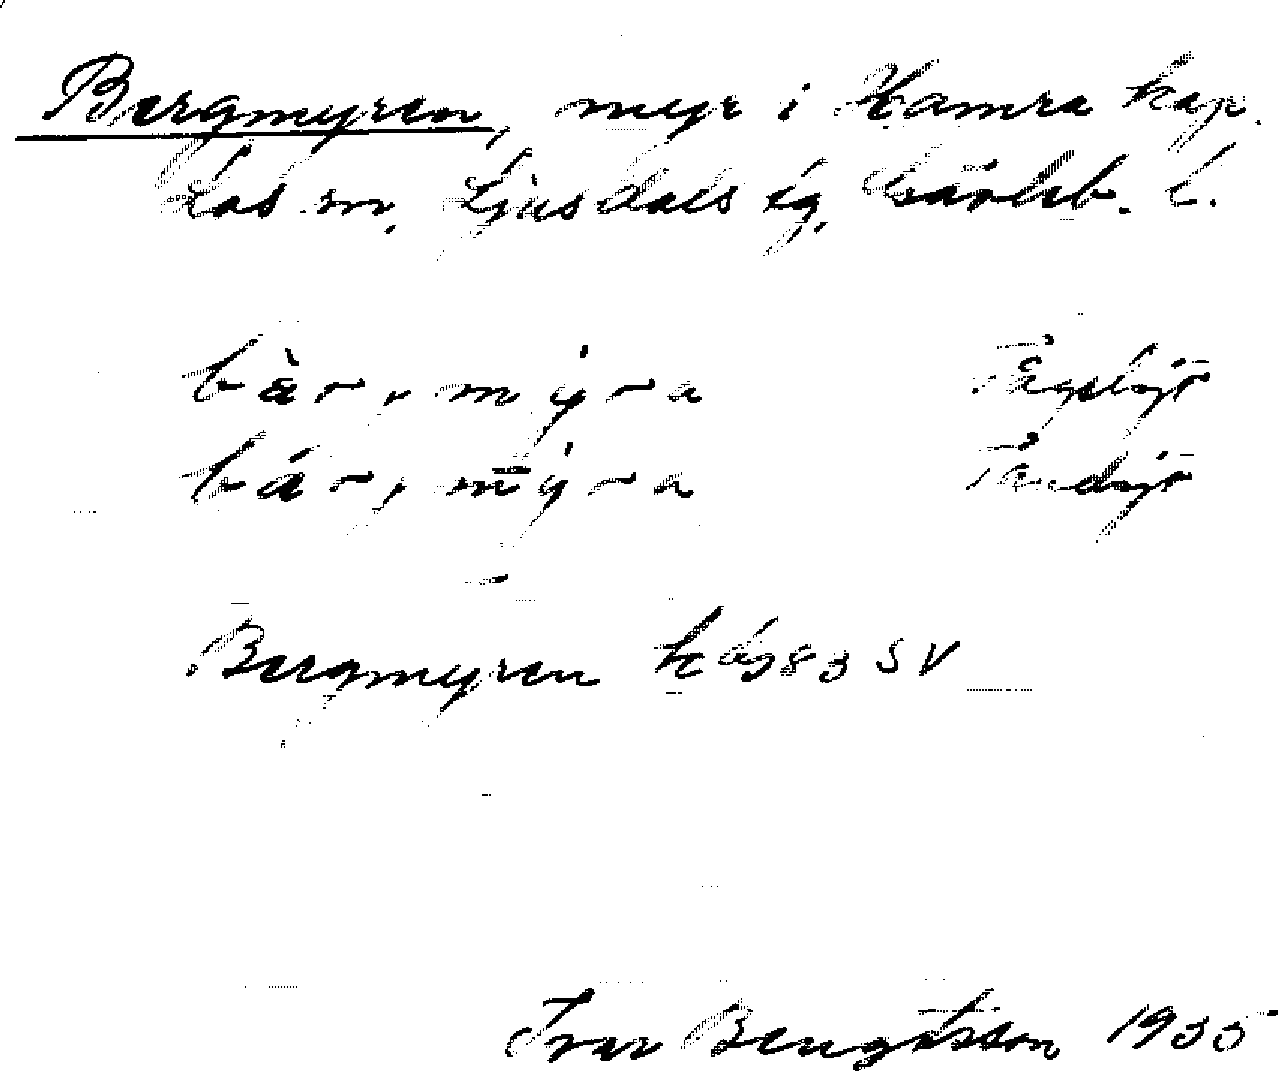 Bergmyren, myr i Hamra kap.
Los sn, Ljusdals tg, Gävleb. l.
bàr,mýra Fågelsjö
bár,mýra Tandsjö
Bergmyren kåg83 SV
Ivar Bengtsson 1935